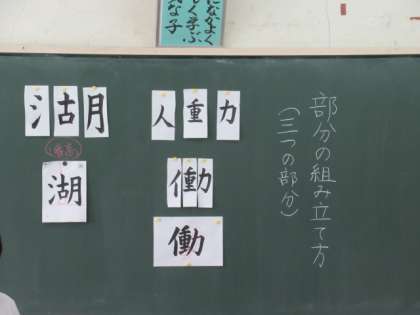 になかよく
しく学ぶ
な子
部分の組み立て方
(三つの部分)
人重力
働
働
氵古月
湖